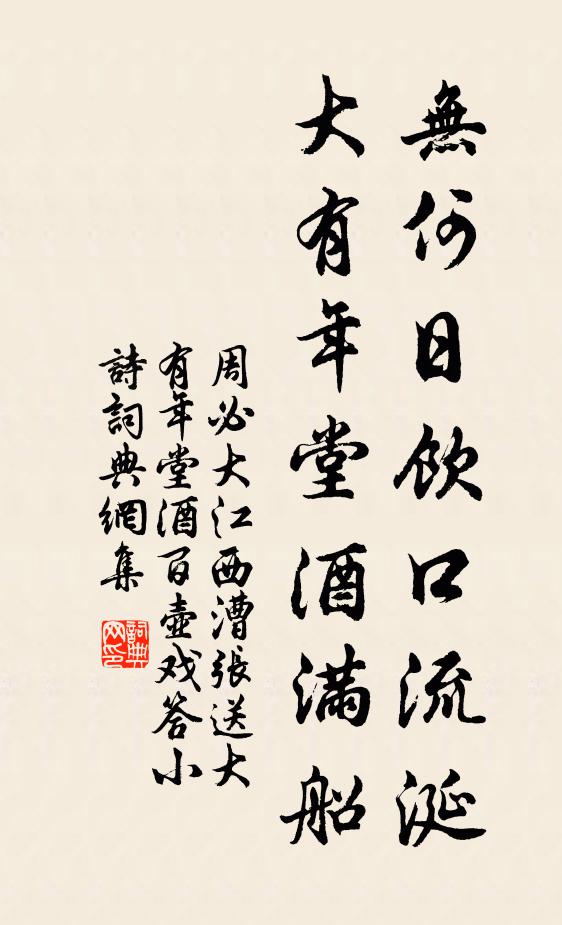 無何日飲口流涎
大有年堂酒滿船
周必大江西漕張送大
有年堂酒百壺戏答小
詩詞典網集
詞典网印